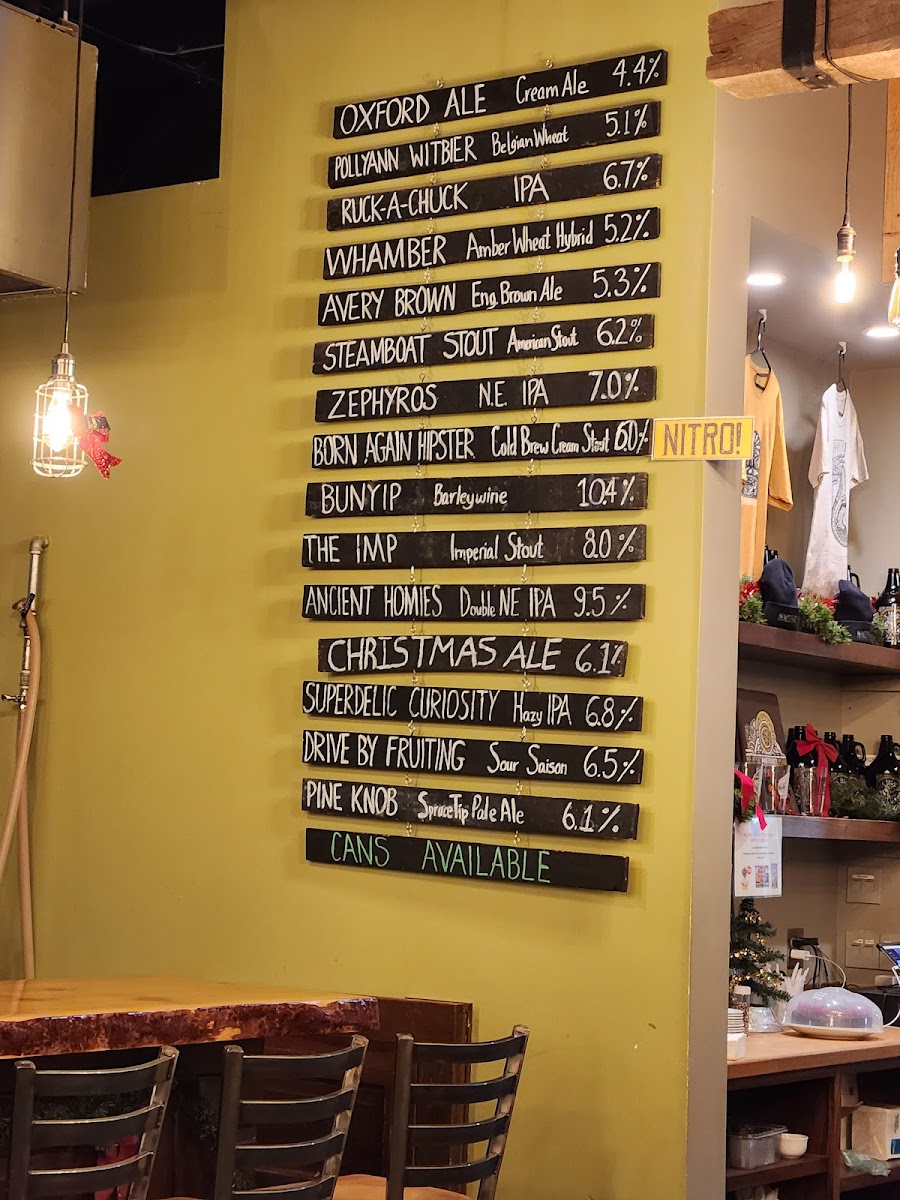 OXFORD ALE Cream Ale 4.4%
POLLYANN WITBIER Belgian Wheat 5.1%
RUCK-A-CHUCK IPA 6.7%
WHAMBER Amber Wheat Hybrid 5.2%
AVERY BROWN Eng. Brown Ale 5.3%
STEAMBOAT STOUT American Stout 6.2%
ZEPHYROS N.E. IPA 7.0%
BORN AGAIN HIPSTER Cold Brew Cream Stout 6.0% NITRO!
BUNYIP Barleywine 10.4%
THE IMP Imperial Stout 8.0%
ANCIENT HOMIES Double NE IPA 9.5%
CHRISTMAS ALE 6.1%
SUPERDELIC CURIOSITY Hazy IPA 6.8%
DRIVE BY FRUITING Sour Saison 6.5%
PINE KNOB Spruce Tip Pale Ale 6.1%
CANS AVAILABLE